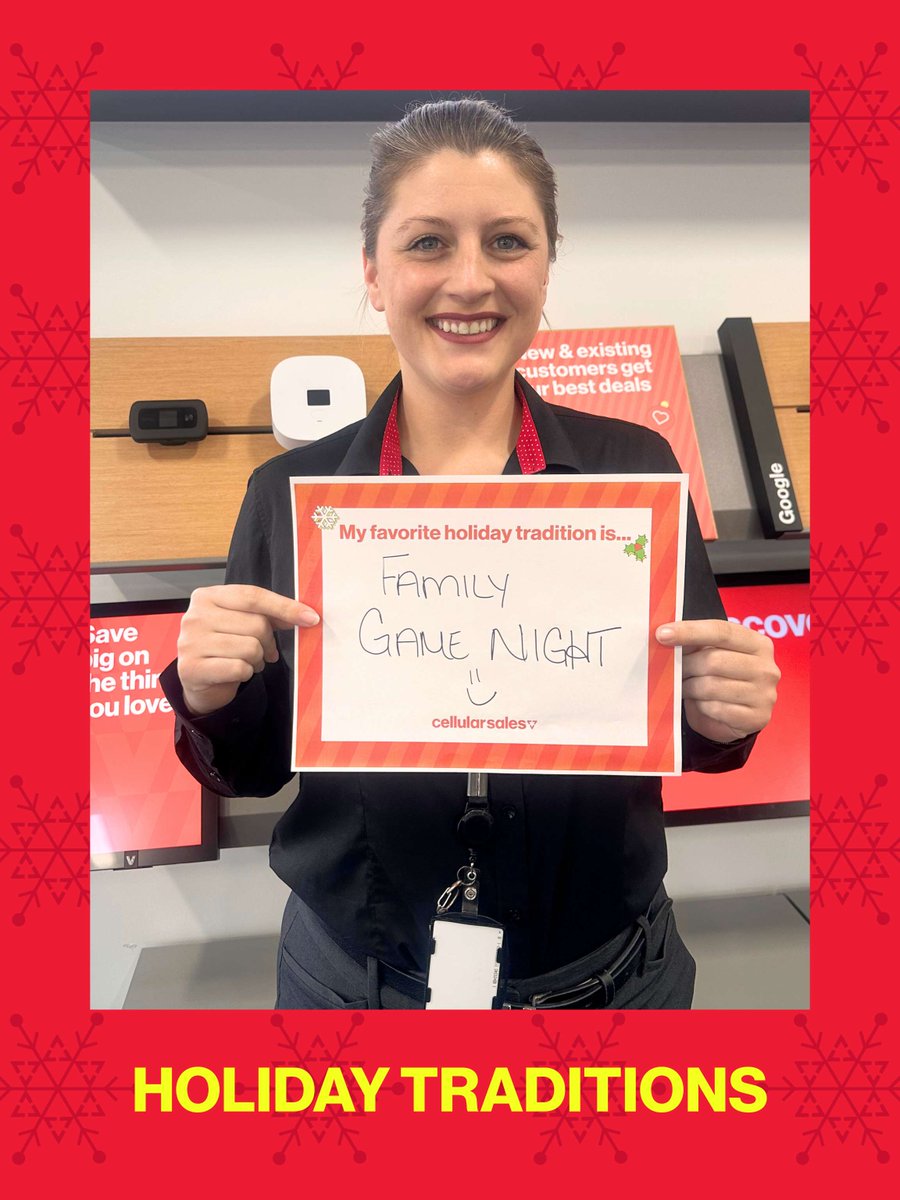 New & existing
customers get
our best deals
Google
My favorite holiday tradition is...
FAMILY
GAME NIGHT
cellularsales
Save
big on
the
you love
HOLIDAY TRADITIONS